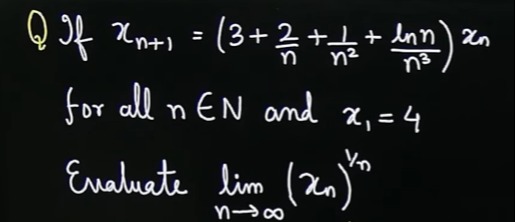 Q If xₙ₊₁ = (3 + 2/n + 1/n² + ln n/n³) xₙ
for all n ∈ N and x₁ = 4
Evaluate lim n→∞ (xₙ)^1/n